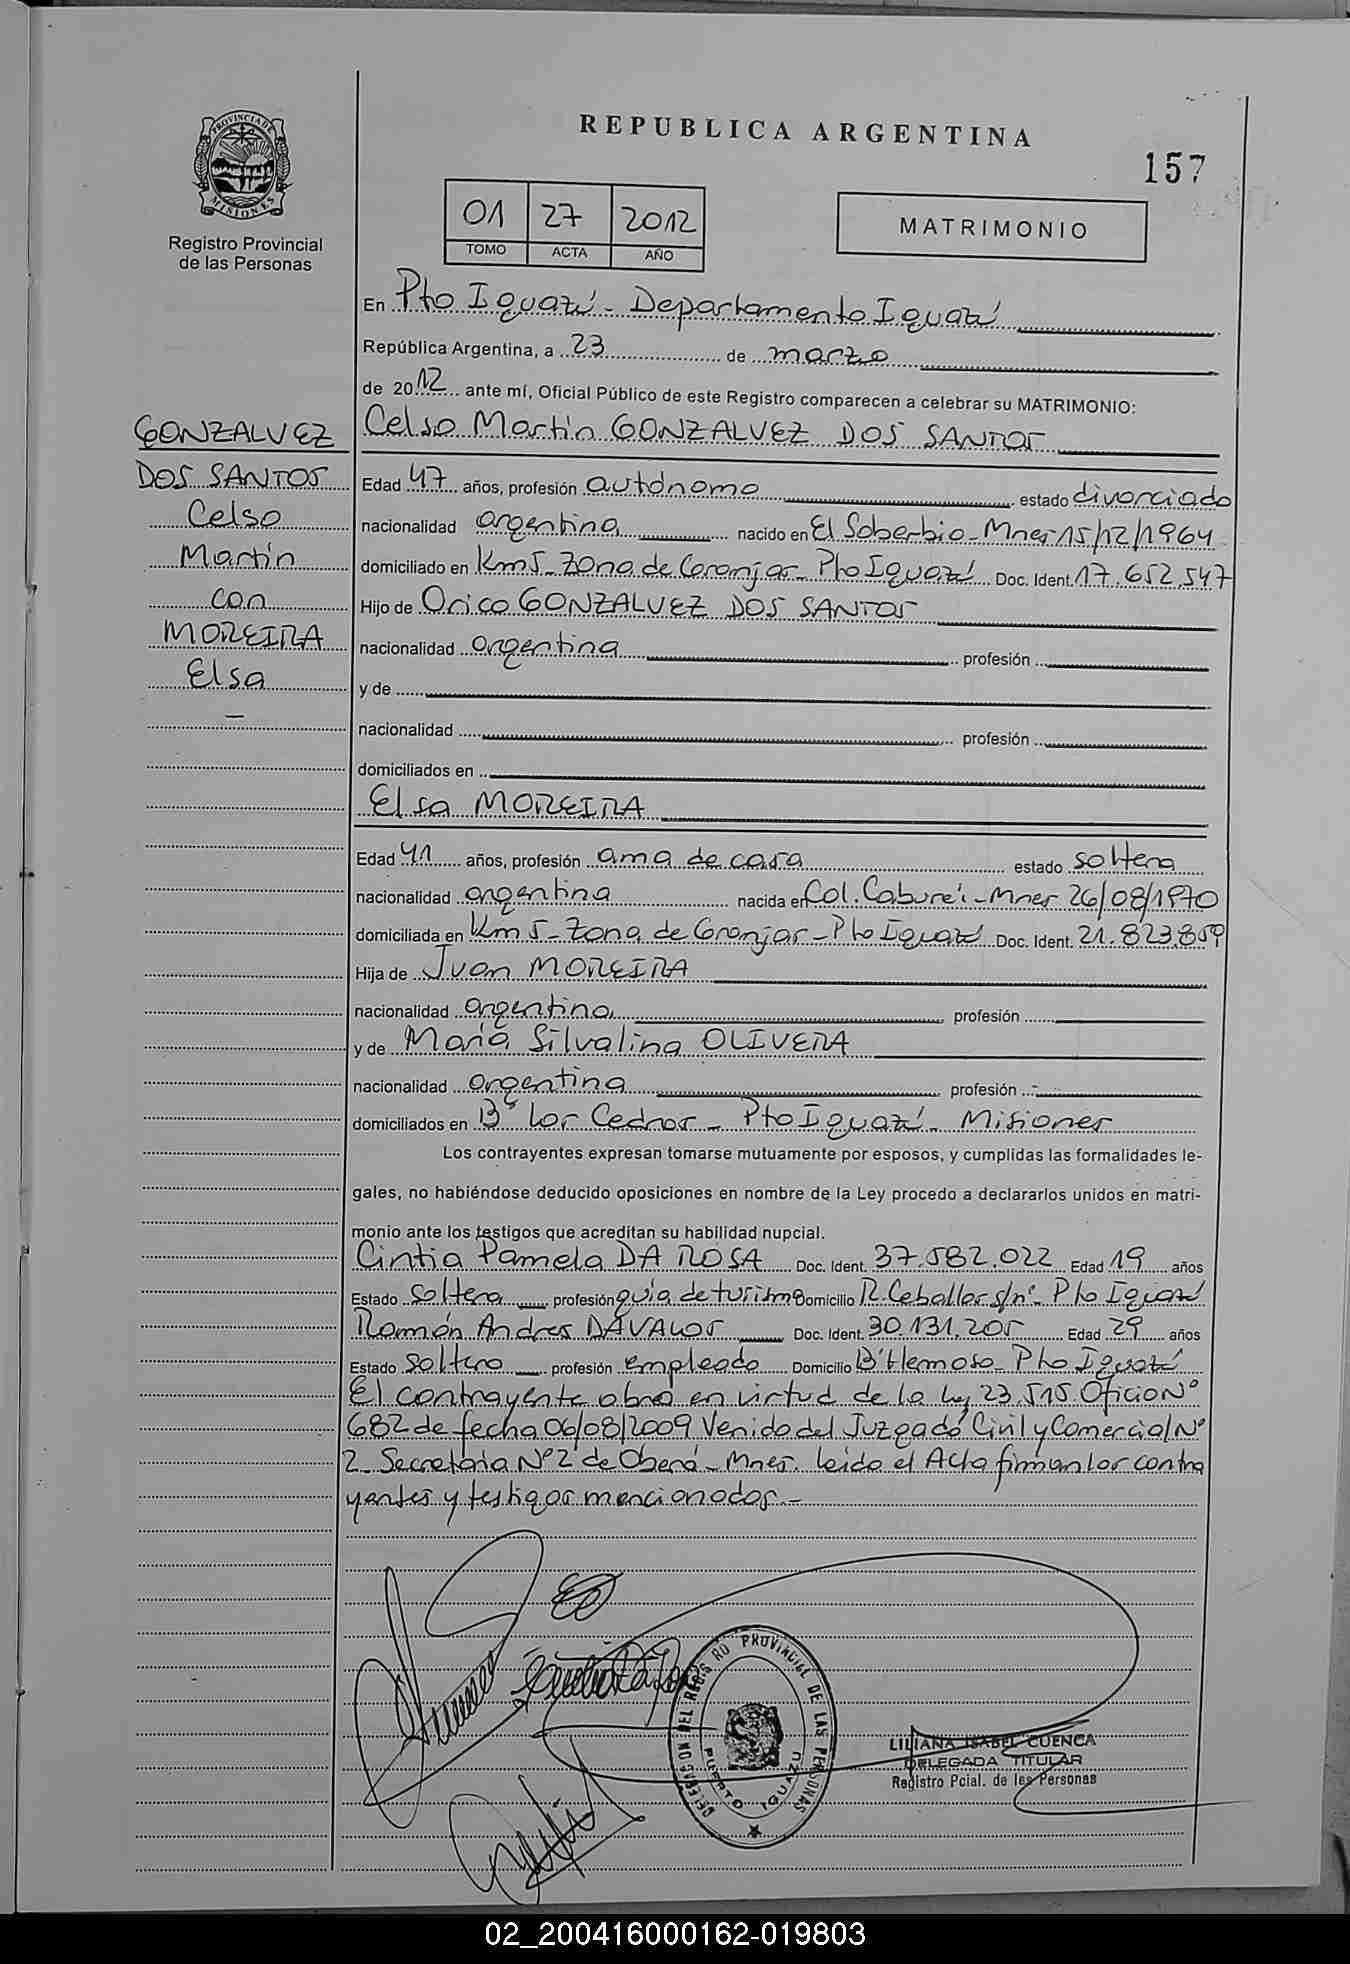 PROVINCIA DE
MISIONES
Registro Provincial
de las Personas
REPUBLICA ARGENTINA
157
01 27 2012
TOMO ACTA AÑO
MATRIMONIO
En Pto Iguazú - Departamento Iguazú
República Argentina, a 23 de marzo
de 2012 ante mí, Oficial Público de este Registro comparecen a celebrar su MATRIMONIO:
GONZALVEZ
DOS SANTOS
Celso
Martín
con
MOREIRA
Elsa
-
Celso Martín GONZALVEZ DOS SANTOS
Edad 47 años, profesión autónomo estado divorciado
nacionalidad argentina nacido en El Soberbio - Mnes 15/12/1964
domiciliado en Km 5 - Zona de Granjas - Pto Iguazú Doc. Ident. 17.652.547
Hijo de Orico GONZALVEZ DOS SANTOS
nacionalidad argentina profesión
y de
nacionalidad profesión
domiciliados en
Elsa MOREIRA
Edad 41 años, profesión ama de casa estado soltera
nacionalidad argentina nacida en Col. Caburei - Mnes 26/08/1970
domiciliada en Km 5 - Zona de Granjas - Pto Iguazú Doc. Ident. 21.823.859
Hija de Juan MOREIRA
nacionalidad argentina profesión
y de María Silvalina OLIVERA
nacionalidad argentina profesión -
domiciliados en Bº Los Cedros - Pto Iguazú - Misiones
Los contrayentes expresan tomarse mutuamente por esposos, y cumplidas las formalidades le-
gales, no habiéndose deducido oposiciones en nombre de la Ley procedo a declararlos unidos en matri-
monio ante los testigos que acreditan su habilidad nupcial.
Cintia Pamela DA ROSA Doc. Ident. 37.582.022 Edad 19 años
Estado soltera profesión guía de turismo Domicilio R. Ceballos s/nº - Pto Iguazú
Ramón Andres DAVALOS Doc. Ident. 30.131.205 Edad 29 años
Estado soltero profesión empleado Domicilio Bº Hermoso - Pto Iguazú
El contrayente obra en virtud de la ley 23.515. Oficio Nº
682 de fecha 06/08/2009 Venido del Juzgado Civil y Comercial Nº
2 - Secretaria Nº 2 de Oberá - Mnes. Leido el Acta firman los contra
yentes y testigos mencionados. -
DELEGACION DEL REGISTRO PROVINCIAL DE LAS PERSONAS
PUERTO IGUAZU
LILIANA ISABEL CUENCA
DELEGADA TITULAR
Registro Pcial. de las Personas
02_200416000162-019803